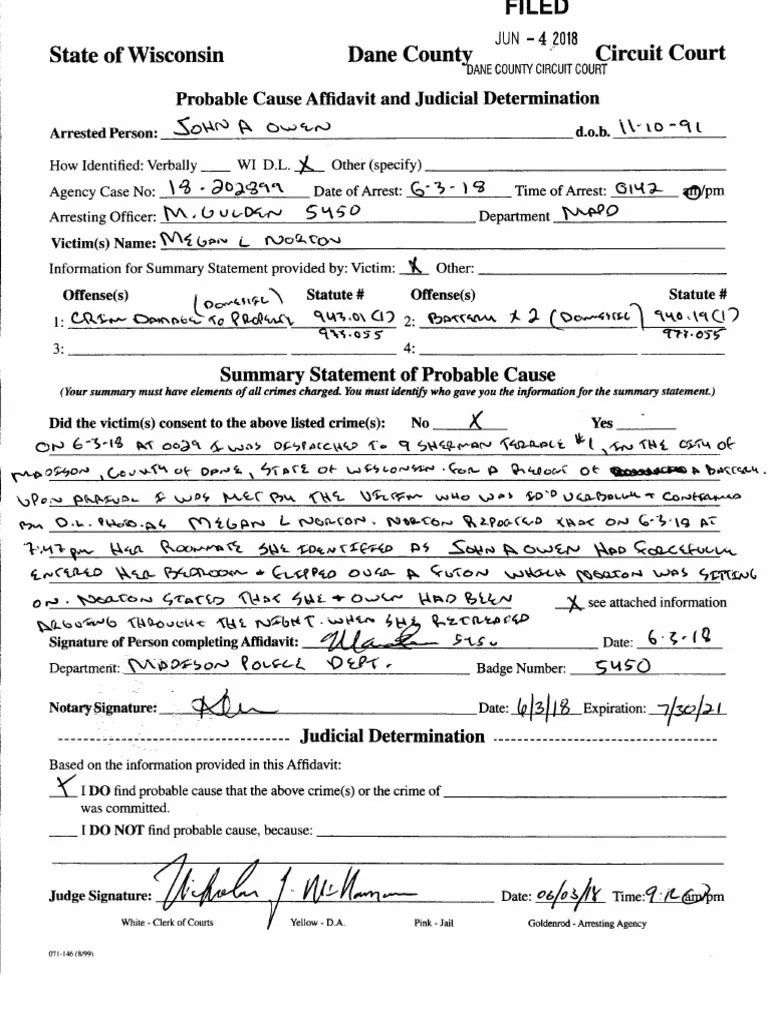 FILED
JUN - 4 2018
State of Wisconsin Dane County Circuit Court
DANE COUNTY CIRCUIT COURT
Probable Cause Affidavit and Judicial Determination
Arrested Person: JOHN A OWEN d.o.b. 11-10-91
How Identified: Verbally ____ WI D.L. X Other (specify)
Agency Case No: 18-202899 Date of Arrest: 6-3-18 Time of Arrest: 0142 am/pm
Arresting Officer: M. GULDEN 5450 Department MAPD
Victim(s) Name: MEGAN L NORTON
Information for Summary Statement provided by: Victim: X Other:
Offense(s) (DOMESTIC) Statute # Offense(s) Statute #
1: CRIM DAMAGE TO PROPERTY 943.01(1) 2: BATTERY x 2 (DOMESTIC) 940.19(1)
973.055 973.055
3: 4:
Summary Statement of Probable Cause
(Your summary must have elements of all crimes charged. You must identify who gave you the information for the summary statement.)
Did the victim(s) consent to the above listed crime(s): No X Yes
ON 6-3-18 AT 0029 I WAS DISPATCHED TO 9 SHERMAN TERRACE #1, IN THE CITY OF
MADISON, COUNTY OF DANE, STATE OF WISCONSIN. FOR A REPORT OF A BATTERY.
UPON ARRIVAL I WAS MET BY THE VICTIM WHO WAS ID'D VERBALLY + CONFIRMED
BY D.L. PHOTO. AS MEGAN L NORTON. NORTON REPORTED THAT ON 6-3-18 AT
7:47 pm HER ROOMMATE SHE IDENTIFIED AS JOHN A OWEN HAD FORCEFULLY
ENTERED HER BEDROOM + FLIPPED OVER A FUTON WHICH NORTON WAS SITTING
ON. NORTON STATED THAT SHE + OWEN HAD BEEN X see attached information
ARGUING THROUGHT THE NIGHT. WHEN SHE RETREATED
Signature of Person completing Affidavit: 5450 Date: 6-3-18
Department: MADISON POLICE DEPT. Badge Number: 5450
Notary Signature: Date: 6/3/18 Expiration: 7/30/21
Judicial Determination
Based on the information provided in this Affidavit:
X I DO find probable cause that the above crime(s) or the crime of
was committed.
I DO NOT find probable cause, because:
Judge Signature: Nicholas J. McNamara Date: 06/03/18 Time: 9:12 am/pm
White - Clerk of Courts Yellow - D.A. Pink - Jail Goldenrod - Arresting Agency
071-146 (8/99)